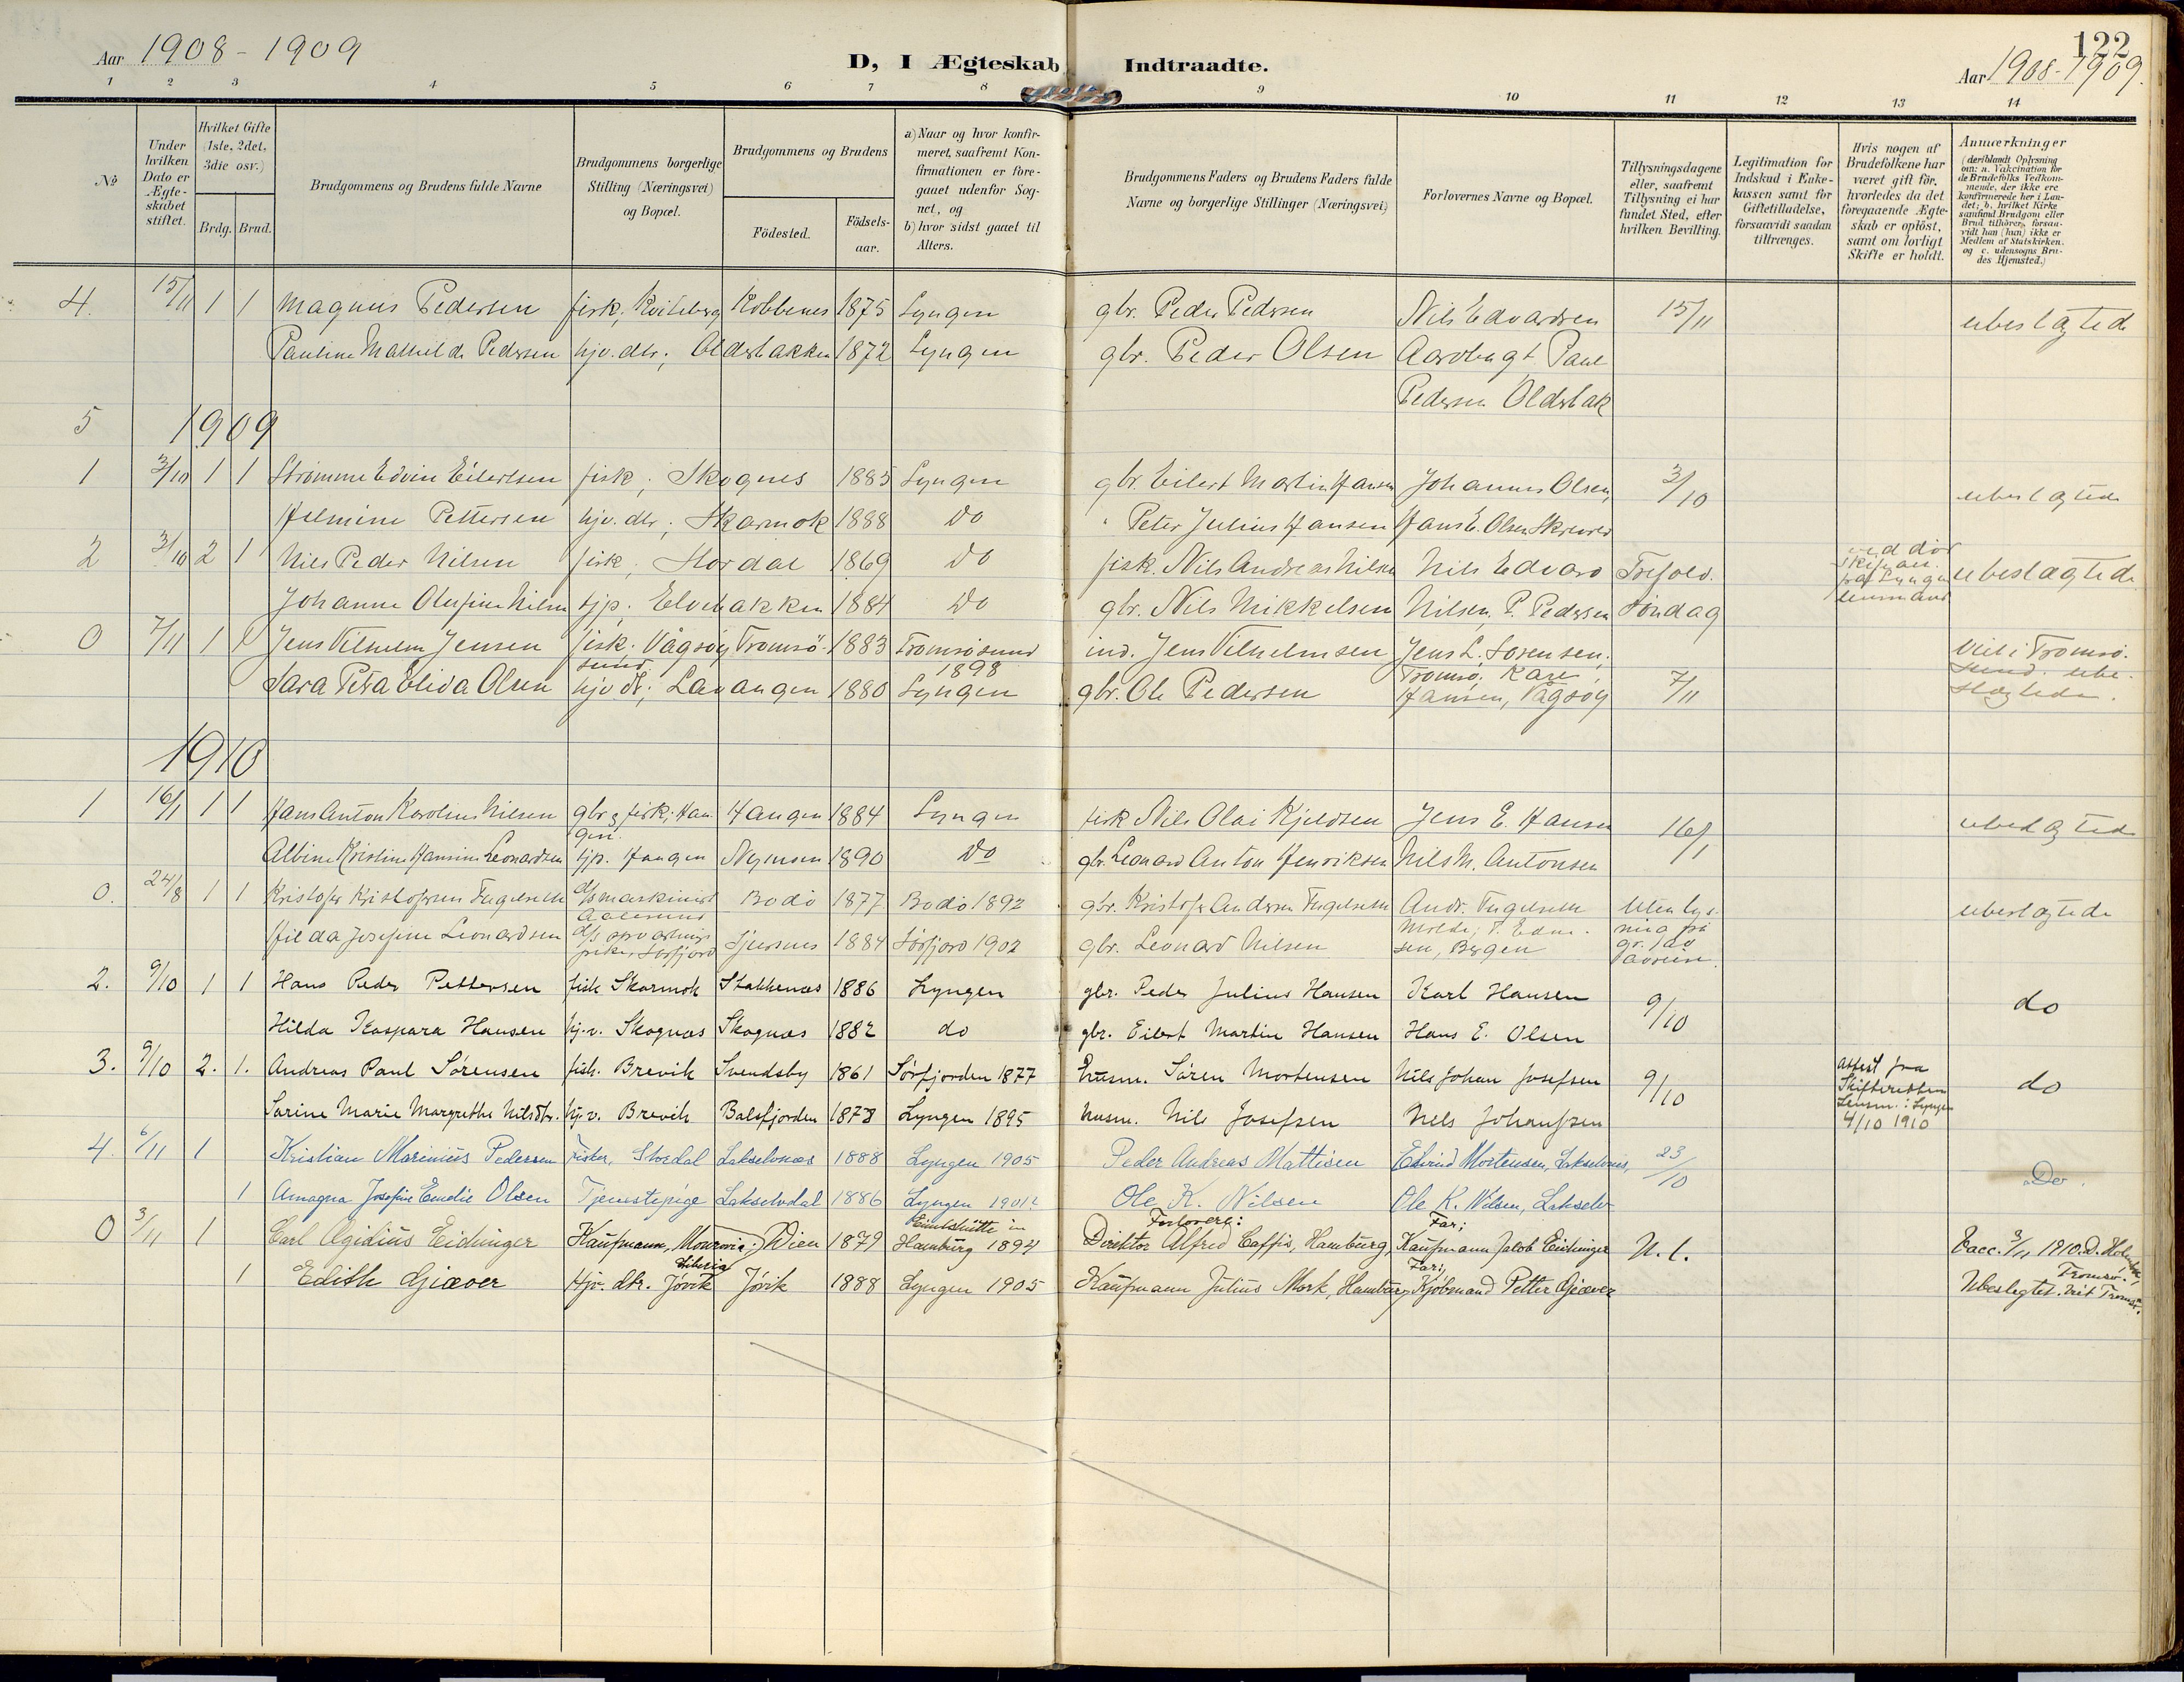 Aar 1908-1909
D, I Ægteskab Indtraadte.
122
Aar 1908-1909.
1 2 3 4 5 6 7 8 9 10 11 12 13 14
No
Under hvilken Dato er Ægteskabet stiftet.
Hvilket Gifte (1ste, 2det, 3die osv.)
Brdg. Brud.
Brudgommens og Brudens fulde Navne
Brudgommens borgerlige Stilling (Næringsvei) og Bopæl.
Brudgommens og Brudens
Födested. Födselsaar.
a) Naar og hvor konfirmeret, saafremt Konfirmationen er foregaaet udenfor Sognet, og
b) hvor sidst gaaet til Alters.
Brudgommens Faders og Brudens Faders fulde Navne og borgerlige Stillinger (Næringsvei)
Forlovernes Navne og Bopæl.
Tillysningsdagene eller, saafremt Tillysning ei har fundet Sted, efter hvilken Bevilling.
Legitimation for Indskud i Enkekassen samt for Giftetilladelse, forsaavidt saadan tiltrænges.
Hvis nogen af Brudefolkene har været gift för, hvorledes da det foregaaende Ægteskab er oplöst, samt om lovligt Skifte er holdt.
Anmærkninger (deriblandt Oplysning om: a. Vakcination for de Brudefolks Vedkommende, der ikke ere konfirmerede her i Landet; b. hvilket Kirkesamfund Brudgom eller Brud tilhörer, forsaavidt han (hun) ikke er Medlem af Statskirken. og c. udensogns Brudes Hjemsted.)
4. 15/11 1 1 Magnus Pedersen fisk; Kviteberg Kobbenes 1875 Lyngen gbr. Peder Pedersen Nils Edvardsen 15/11 ubeslagtede
Pauline Mathilde Pedersen hjv. dtr; Olderbakken 1872 Lyngen gbr. Peder Olsen Paul
Pedersen Olderbak
5 1909
1 3/10 1 1 Strømme Edvin Eilertsen fisk; Skognes 1885 Lyngen gbr. Eilert Martin Hansen Johannes Olsen, 3/10 ubeslagtede
Hilmine Pettersen hjv. dtr; Skarmok 1888 do Peter Julius Hansen Hans E. Olsen
2 3/10 2 1 Nils Peder Nilsen fisk; Stordal 1869 do fisk. Nils Andreas Nilsen Nils Edvard Trefold. ubeslagtede
Johanne Olufine Nilsen tjp. Elvebakken 1884 do gbr. Nils Mikkelsen Nilsen, P. Pedersen söndag
0 7/11 1 1 Jens Vilhelm Jensen fisk. Vågsöy Tromsö- 1883 Tromsösund ind. Jens Vilhelmsen Jens L. Sörensen, Viet i Tromsö-
sund 1898 Tromsö, Kare sund. ube-
Sara Petra Elida Olsen hjv. dt; Lavangen 1880 Lyngen gbr. Ole Pedersen Hansen, Vågsöy 7/11 slagtede.
1910
1 16/1 1 1 Hans Anton Karolius Nilsen gbr & fisk; Hau- Haugen 1884 Lyngen fisk Nils Olai Kjeldsen Jens E. Hansen 16/1 ubeslagtede
gen
Albine Kristine Hansine Leonardsen tjp. Haugen Nymoen 1890 do gbr. Leonard Anton Henriksen Nils M. Antonsen
0. 24/8 1 1 Kristofer Kristofersen Fugelsem d/s maskinist Bodö 1877 Bodö 1892 gbr. Kristofer Andersen Fugelsem Andr. Fugelsem Uten lys- ubeslagtede
Aalesund Molde; P. Edm. ning på
Hilda Josefine Leonardsen 1884 Sörfjord 1902 gbr. Leonard Nilsen sen, Bergen
2. 9/10 1 1 Hans Peder Pettersen fisk Skarmok Stakkenæs 1886 Lyngen gbr. Peder Julius Hansen Karl Hansen 9/10 do
Hilda Kaspara Hansen hj.v. Skognæs Skognæs 1882 do gbr. Eilert Martin Hansen Hans E. Olsen
3. 9/10 2. 1. Andreas Paul Sörensen fisk. Brevik Svendsby 1861 Sörfjorden 1877 husm. Sören Mortensen Nils Johan Josefsen 9/10 Attest fra Skifteretten Lensm. i Lyngen 4/10 1910 do
Sarine Marie Margrethe Nilsdtr. hj.v. Brevik Balsfjorden 1878 Lyngen 1895 husm. Nils Josefsen Nils Johansen
4. 6/11 1 Kristian Marinius Pedersen Fisker, Stordal Lakselvnæs 1888 Lyngen 1905 Peder Andreas Mattisen Edvind Mortensen, Lakselvnæs, 23/10 Do.
1 Amagna Josefine Emelie Olsen Tjenestepige Lakselvdal 1886 Lyngen 1901 Ole K. Nilsen Ole K. Nilsen, Lakselv
0 3/11 1 Carl Ægidius Eichinger Kaufmann, Monrovia, Wien 1879 Eimbshütte in Hamburg 1894 Forlovere: Direktor Alfred Caffis, Hamburg, Far; Kaufmann Jakob Eichinger U. l. Vacc. 3/11 1910. D. Holmboe, Tromsö.
Liberia
1 Edith Giæver Hjv. dtr. Jövik Jövik 1888 Lyngen 1905 Kaufmann Julius Mork, Hamburg Far; Kjöbmand Petter Giæver Ubeslegtet. Viet Tromsö.